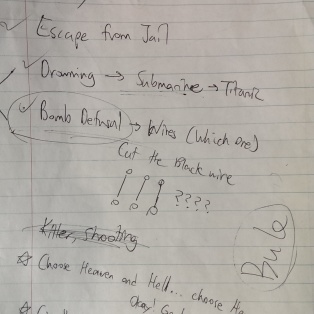 Escape from Jail
Drowning → Submarine → Titanic
Bomb Defusal → Wires (Which one)
Cut the Black wire
????
Killer, Shooting
Choose Heaven and Hell... choose
Okay!